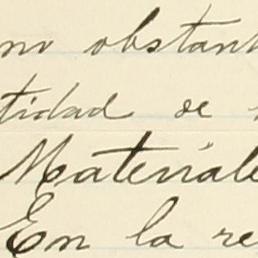 no obstant
tidad de
Materiale
En la re